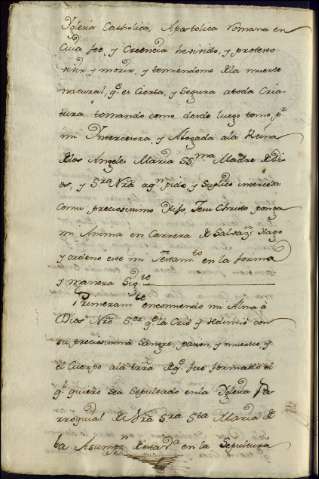 Yglesia Catholica, Apostolica Romana en
Cuia fee, y Creencia he vivido, y protexto
vivir, y morir, y temiendome de la muerte
natural, qe es Cierta, y Segura a toda Cria-
tura tomando como desde luego tomo pr
mi Yntercesora, y Abogada a la Reina
de los Angeles Maria SSma Madre de Di-
os, y Sra Nra a qn pido, y Suplico interceda
con su preciosisimo Hijo Jesu Christo ponga
mi Anima en Carrera de Salvazn Hago
y ordeno este mi Testamto en la forma
y manera Sigte
Primeramte encomiendo mi Alma a
Dios Nro Sor qe la Crió y redimió con
su preciosisima Sangre, pasion y muerte, y
el Cuerpo a la tierra de qe fue formado el
qe quiero sea Sepultado en la Yglesia Pa-
rroquial de Nra Sra Sta Maria de
la Asumpn de esta Va en la Sepultura